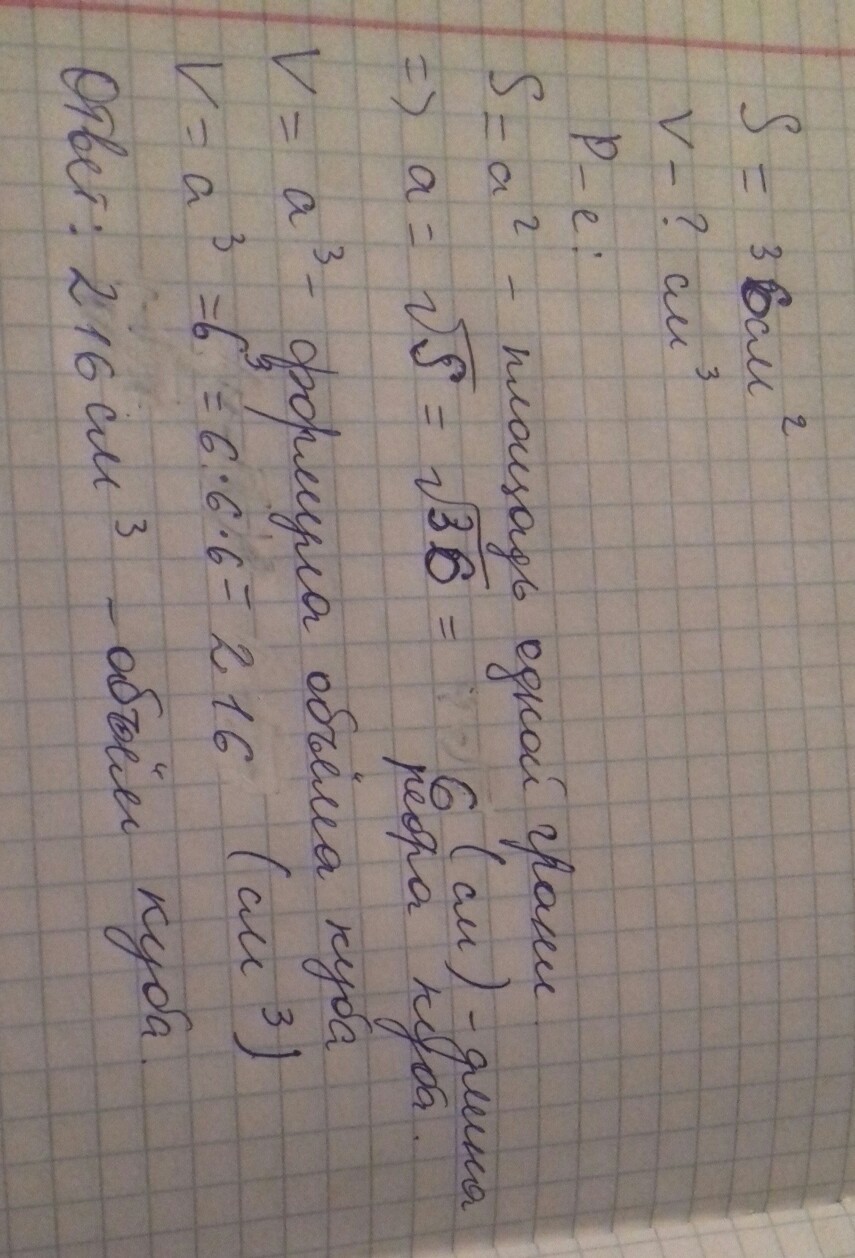 S = 36см²
V - ? см³
Р-е:
S = a² - площадь одной грани.
=> a = √S = √36 = 6 (см) - длина
ребра куба.
V = a³ - формула объёма куба
V = a³ = 6³ = 6·6·6 = 216 (см³)
Ответ: 216 см³ - объём куба.